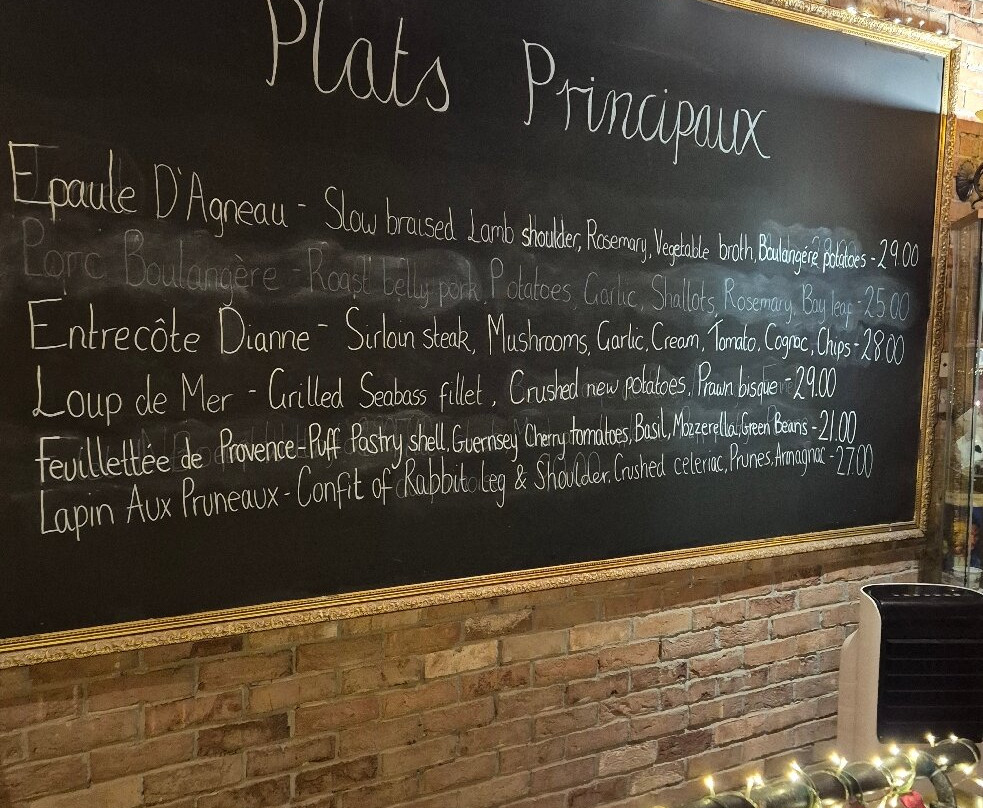 Plats Principaux
Epaule D'Agneau - Slow braised Lamb shoulder, Rosemary, Vegetable broth, Boulangére potatoes - 29.00
Porc Boulangère - Roast belly pork, Potatoes, Garlic, Shallots, Rosemary, Bay leaf - 25.00
Entrecôte Dianne - Sirloin steak, Mushrooms, Garlic, Cream, Tomato, Cognac, Chips - 28.00
Loup de Mer - Grilled Seabass fillet, Crushed new potatoes, Prawn bisque - 29.00
Feuillettée de Provence - Puff Pastry shell, Guernsey Cherry tomatoes, Basil, Mozzerella, Green Beans - 21.00
Lapin Aux Pruneaux - Confit of Rabbit leg & Shoulder, Crushed celeriac, Prunes, Armagnac - 27.00